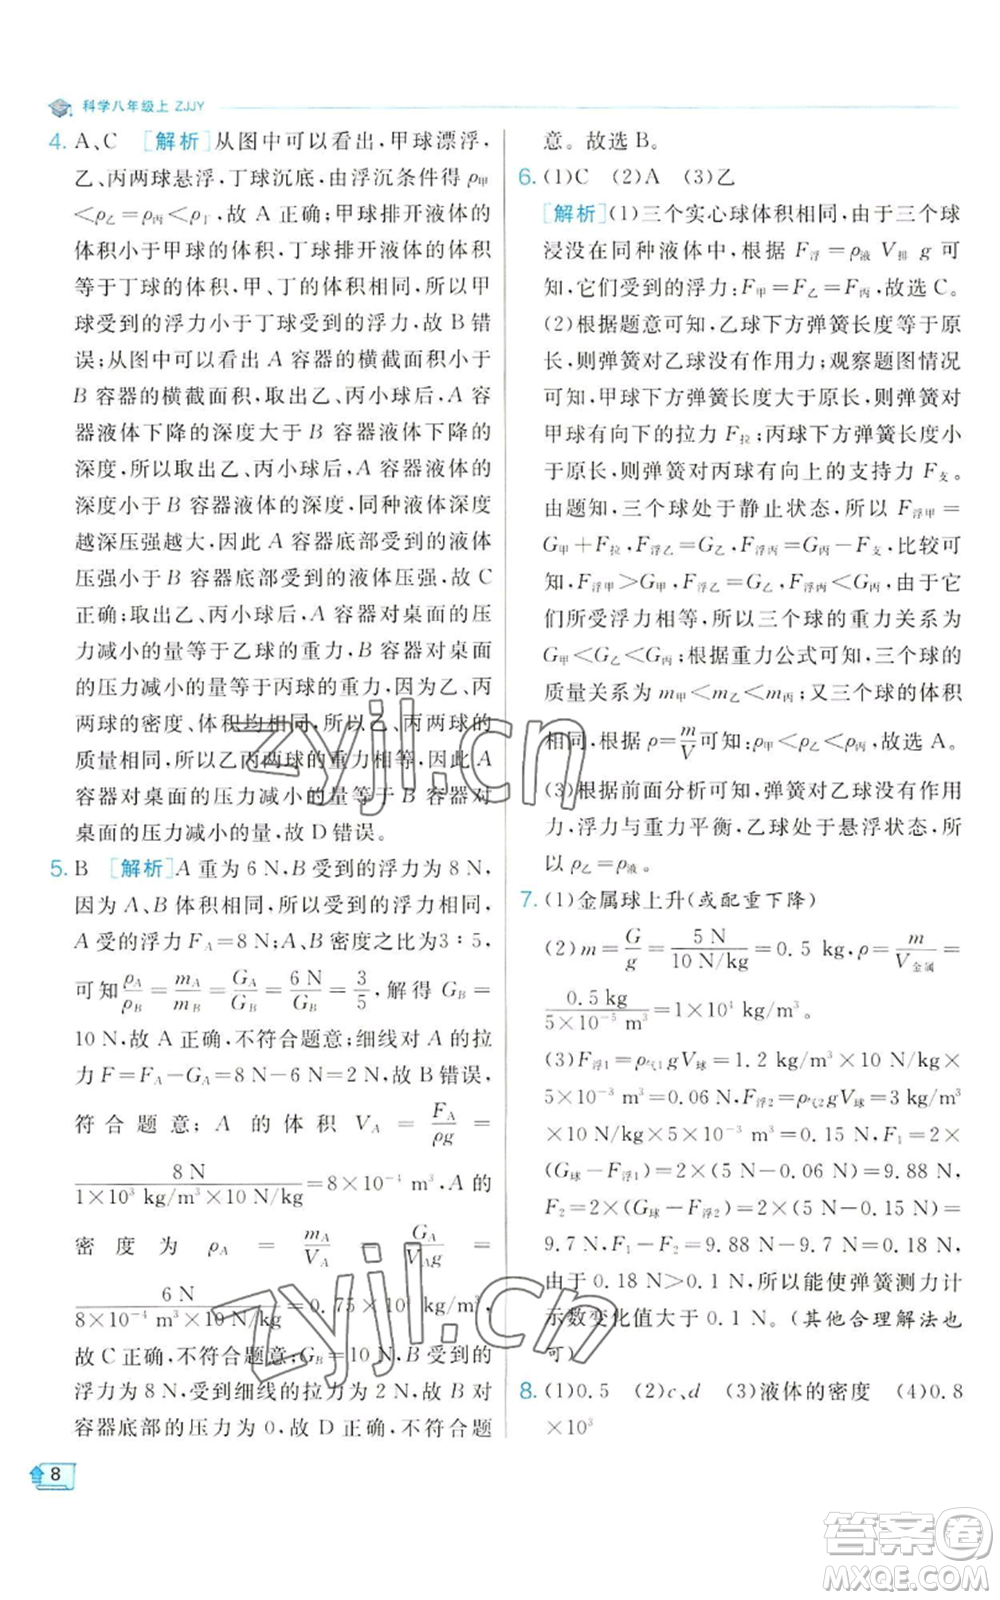 科学八年级上 ZJJY
4. A、C [解析]从图中可以看出,甲球漂浮,
乙、丙两球悬浮,丁球沉底,由浮沉条件得 ρ甲
<ρ乙=ρ丙<ρ丁,故 A 正确;甲球排开液体的
体积小于甲球的体积,丁球排开液体的体积
等于丁球的体积,甲、丁的体积相同,所以甲
球受到的浮力小于丁球受到的浮力,故 B 错
误;从图中可以看出 A 容器的横截面积小于
B 容器的横截面积,取出乙、丙小球后,A 容
器液体下降的深度大于 B 容器液体下降的
深度,所以取出乙、丙小球后,A 容器液体的
深度小于 B 容器液体的深度,同种液体深度
越深压强越大,因此 A 容器底部受到的液体
压强小于 B 容器底部受到的液体压强,故 C
正确;取出乙、丙小球后,A 容器对桌面的压
力减小的量等于乙球的重力,B 容器对桌面
的压力减小的量等于丙球的重力,因为乙、丙
两球的密度、体积均相同,所以乙、丙两球的
质量相同,所以乙丙两球的重力相等,因此 A
容器对桌面的压力减小的量等于 B 容器对
桌面的压力减小的量,故 D 错误。
5. B [解析]A 重为 6 N,B 受到的浮力为 8 N,
因为 A、B 体积相同,所以受到的浮力相同,
A 受的浮力 F_A=8 N;A、B 密度之比为3∶5,
可知 ρ_A/ρ_B = m_A/m_B = G_A/G_B = 6 N/G_B = 3/5,解得 G_B=
10 N,故 A 正确,不符合题意;细线对 A 的拉
力 F=F_A-G_A=8 N-6 N=2 N,故 B错误,
符合题意;A 的体积 V_A = F_A/ρg =
8 N/(1×10³ kg/m³×10 N/kg)=8×10⁻⁴ m³,A 的
密度为 ρ_A = m_A/V_A = G_A/V_Ag =
6 N/(8×10⁻⁴ m³×10 N/kg)=0.75×10³ kg/m³,
故 C 正确,不符合题意;G_B=10 N,B 受到的
浮力为 8 N,受到细线的拉力为 2 N,故 B 对
容器底部的压力为 0,故 D 正确,不符合题
意。故选 B。
6. (1)C (2)A (3)乙
[解析](1)三个实心球体积相同,由于三个球
浸没在同种液体中,根据 F浮=ρ液 V排 g 可
知,它们受到的浮力:F甲=F乙=F丙,故选 C。
(2)根据题意可知,乙球下方弹簧长度等于原
长,则弹簧对乙球没有作用力;观察题图情况
可知,甲球下方弹簧长度大于原长,则弹簧对
甲球有向下的拉力 F拉;丙球下方弹簧长度小
于原长,则弹簧对丙球有向上的支持力 F支。
由题知,三个球处于静止状态,所以 F浮甲=
G甲+F拉,F浮乙=G乙,F浮丙=G丙-F支,比较可
知,F浮甲>G甲,F浮乙=G乙,F浮丙<G丙,由于三
个球浮力相等,所以三个球的重力关系为
G甲<G乙<G丙;根据重力公式可知,三个球的
质量关系为 m甲<m乙<m丙;又三个球的体积
相同,根据 ρ=m/V可知:ρ甲<ρ乙<ρ丙,故选 A。
(3)根据前面分析可知,弹簧对乙球没有作用
力,浮力与重力平衡,乙球处于悬浮状态,所
以 ρ乙=ρ液。
7. (1)金属球上升(或配重下降)
(2)m=G/g=5 N/(10 N/kg)=0.5 kg,ρ=m/V金属=
0.5 kg/(5×10⁻⁵ m³)=1×10⁴ kg/m³。
(3)F浮1=ρ气1gV球=1.2 kg/m³×10 N/kg×
5×10⁻³ m³=0.06 N,F浮2=ρ气2gV球=3 kg/m³
×10 N/kg×5×10⁻³ m³=0.15 N,F₁=2×
(G球-F浮1)=2×(5 N-0.06 N)=9.88 N,
F₂=2×(G球-F浮2)=2×(5 N-0.15 N)=
9.7 N,F₁-F₂=9.88 N-9.7 N=0.18 N,
由于 0.18 N>0.1 N,所以能使弹簧测力计
示数变化值大于 0.1 N。(其他合理解法也
可)
8. (1)0.5 (2)c、d (3)液体的密度 (4)0.8
×10³
8
zyjl.cn
zyjl.cn
答案圈
MXQE.COM